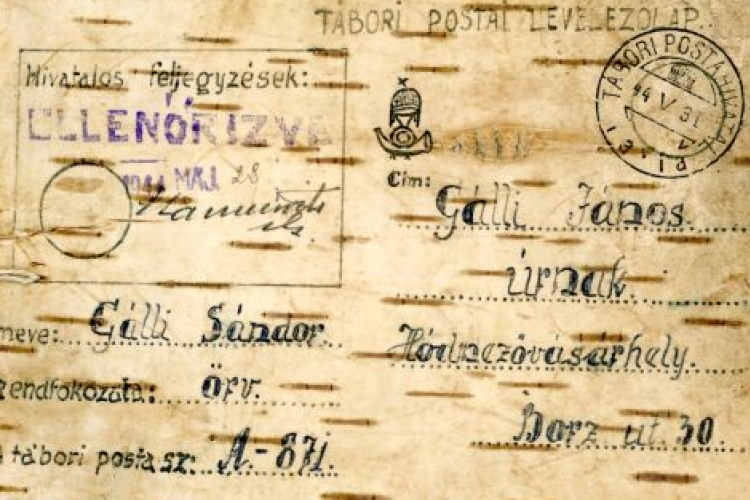 TÁBORI POSTAI LEVELEZŐLAP.
Hivatalos feljegyzések:
ELLENŐRIZVE
1944 MÁJ 28
TÁBORI POSTAHIVATAL
44 V 31
Cím:
Gálli János
úrnak
Hódmezővásárhely.
Borz út. 30.
neve: Gálli Sándor.
rendfokozata: őrv.
A tábori posta sz.: A-871.